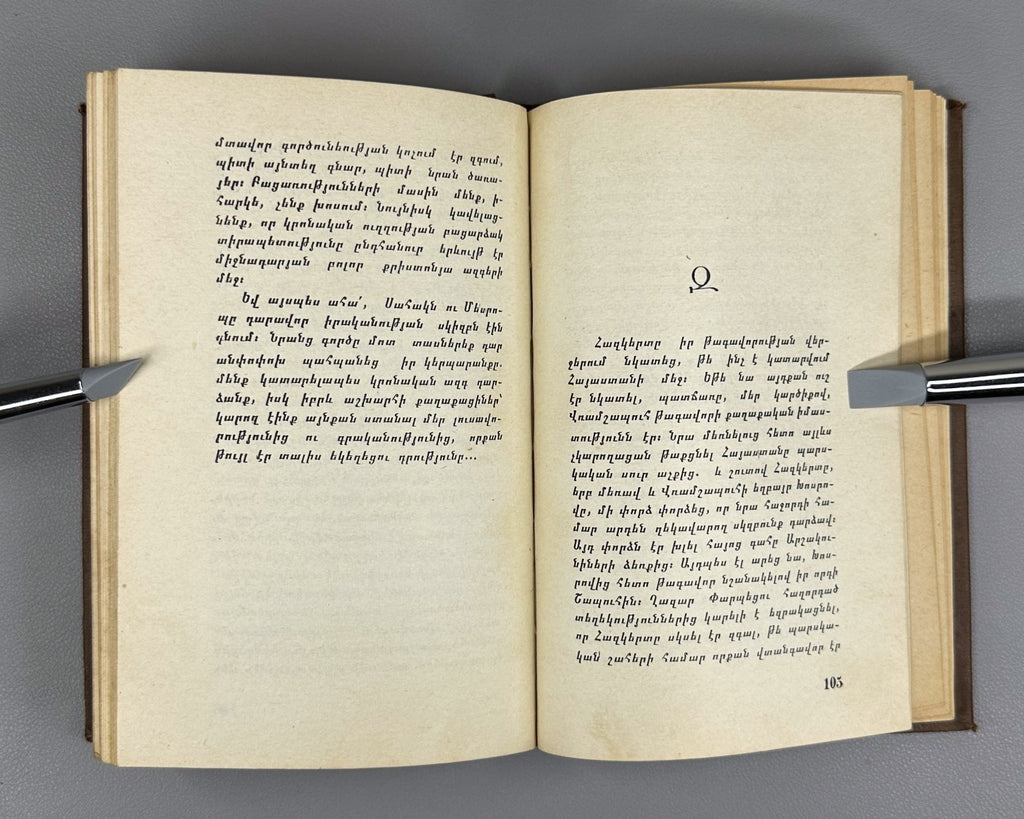 մտավոր գործունեության կոչում էր զգում,
պիտի այնտեղ գնար, պիտի նրան ծառա-
յեր։ Բացառությունների մասին մենք, ի-
հարկե, չենք խոսում։ Նույնիսկ կավելաց-
նենք, որ կրոնական ուղղության բացարձակ
տիրապետությունը ընդհանուր երևույթ էր
միջնադարյան բոլոր քրիստոնյա ազգերի
մեջ։
Եվ այսպես ահա՛, Սահակն ու Մեսրո-
պը դարավոր իրականության սկիզբն էին
դնում։ Նրանց գործը մոտ տասներեք դար
անփոփոխ պահպանեց իր կերպարանքը.
մենք կատարելապես կրոնական ազգ դար-
ձանք, իսկ իբրև աշխարհի քաղաքացիներ՝
կարող էինք այնքան ստանալ մեր լուսավո-
րությունից ու գրականությունից, որքան
թույլ էր տալիս եկեղեցու դրությունը...
Զ
Հազկերտը իր թագավորության վեր-
ջերում նկատեց, թե ինչ է կատարվում
Հայաստանի մեջ։ Եթե նա այդքան ուշ
էր նկատել, պատճառը, մեր կարծիքով,
Վռամշապուհ թագավորի քաղաքական իմաս-
տությունն էր։ Նրա մեռնելուց հետո այլևս
չկարողացան թաքցնել Հայաստանը պարս-
կական սուր աչքից. և շուտով Հազկերտը,
երբ մեռավ և Վռամշապուհի եղբայր Խոսրո-
վը, մի փորձ փորձեց, որ նրա հաջորդի հա-
մար արդեն ղեկավարող սկզբունք դարձավ։
Այդ փորձն էր խլել հայոց գահը Արշակու-
նիների ձեռքից։ Այդպես էլ արեց նա, Խոս-
րովից հետո թագավոր նշանակելով իր որդի
Շապուհին։ Ղազար Փարպեցու հաղորդած
տեղեկություններից կարելի է եզրակացնել,
որ Հազկերտը սկսել էր զգալ, թե պարսկա-
կան շահերի համար որքան վտանգավոր էր
105